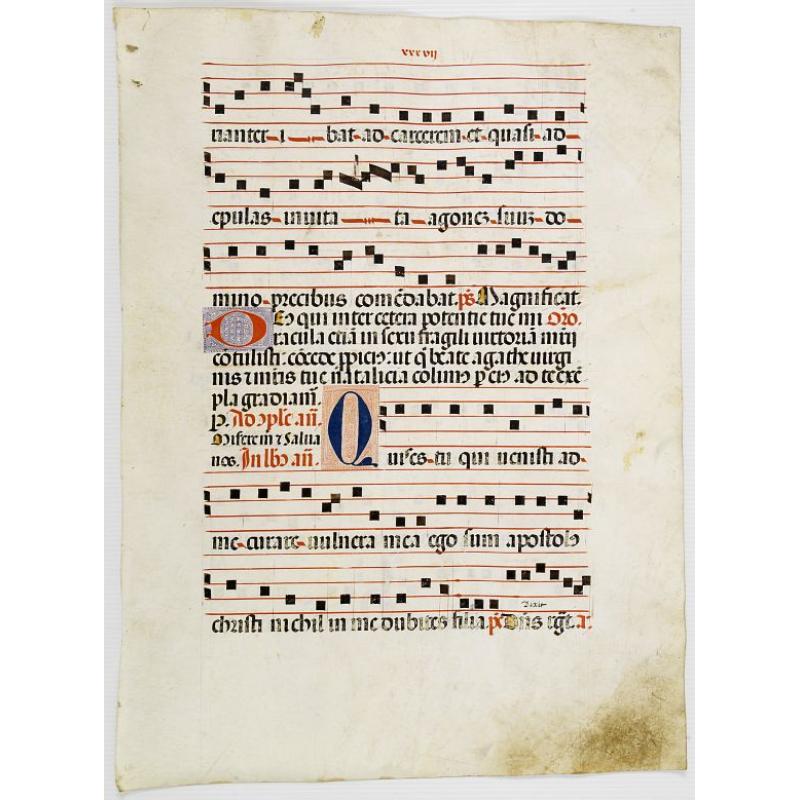 xxxvij
nanter i bat ad carcerem et quasi ad
epulas inuita ta agonez suuz do
mino precibus comẽdabat. ps̃ Magnificat.
Eꝰ qui inter cetera potentie tue mi Oro.
racula etiã in sexu fragili uictoriã mr̃ij
cõtulisti: cõcede ꝓpiciꝰ: ut q̃ beate agathe uirgi
nis ⁊ mr̃is tue natalicia colimꝰ ꝑ eiꝰ ad te exẽ
pla gradiam̃.
P. Ad ꝯplꝫ añ.
Miserem̃ ⁊ Salua
nos. In lbo añ. Q uis es tu qui uenisti ad
me curare uulnera mea ego sum apostolꝰ
christi nichil in me dubites filia. p̃s Dñs rg̃t.
Dixit